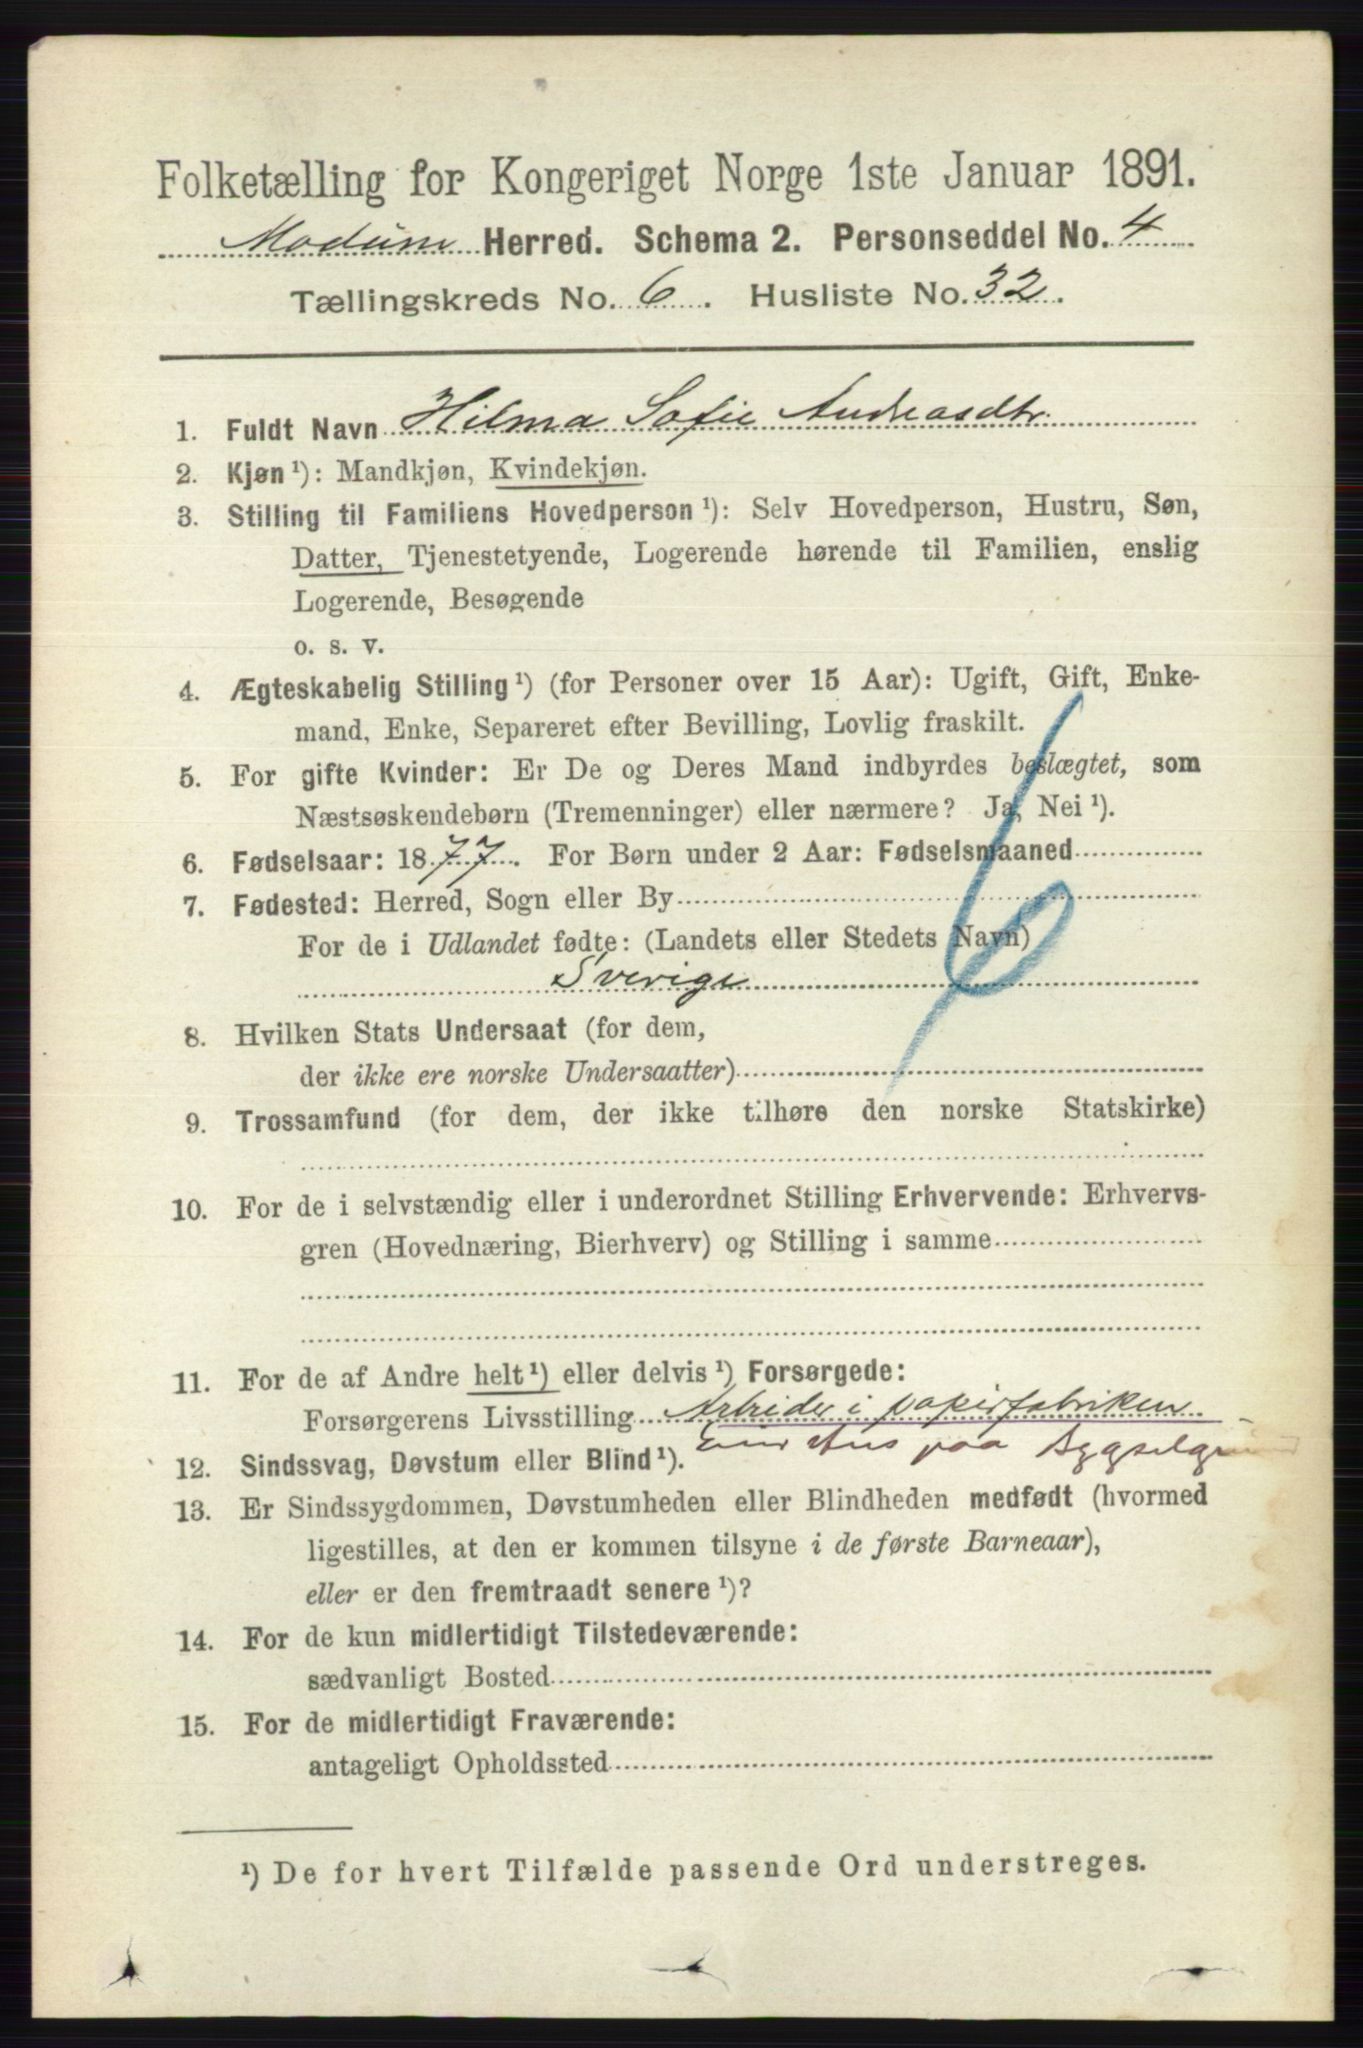 Folketælling for Kongeriget Norge 1ste Januar 1891.
Modum Herred. Schema 2. Personseddel No. 4
Tællingskreds No. 6. Husliste No. 32.
1. Fuldt Navn Hilma Sofie Andreasdtr.
2. Kjøn ¹): Mandkjøn, Kvindekjøn.
3. Stilling til Familiens Hovedperson ¹): Selv Hovedperson, Hustru, Søn,
Datter, Tjenestetyende, Logerende hørende til Familien, enslig
Logerende, Besøgende
o. s. v.
4. Ægteskabelig Stilling ¹) (for Personer over 15 Aar): Ugift, Gift, Enke-
mand, Enke, Separeret efter Bevilling, Lovlig fraskilt.
5. For gifte Kvinder: Er De og Deres Mand indbyrdes beslægtet, som
Næstsøskendebørn (Tremenninger) eller nærmere? Ja, Nei ¹).
6. Fødselsaar: 1877. For Børn under 2 Aar: Fødselsmaaned
7. Fødested: Herred, Sogn eller By
For de i Udlandet fødte: (Landets eller Stedets Navn)
Sverige
8. Hvilken Stats Undersaat (for dem,
der ikke ere norske Undersaatter)
9. Trossamfund (for dem, der ikke tilhøre den norske Statskirke)
10. For de i selvstændig eller i underordnet Stilling Erhvervende: Erhvervs-
gren (Hovednæring, Bierhverv) og Stilling i samme
11. For de af Andre helt ¹) eller delvis ¹) Forsørgede:
Forsørgerens Livsstilling Arbeider i papirfabriken
Eier Hus paa Bygselgrund
12. Sindssvag, Døvstum eller Blind ¹).
13. Er Sindssygdommen, Døvstumheden eller Blindheden medfødt (hvormed
ligestilles, at den er kommen tilsyne i de første Barneaar),
eller er den fremtraadt senere ¹)?
14. For de kun midlertidigt Tilstedeværende:
sædvanligt Bosted
15. For de midlertidigt Fraværende:
antageligt Opholdssted
¹) De for hvert Tilfælde passende Ord understreges.